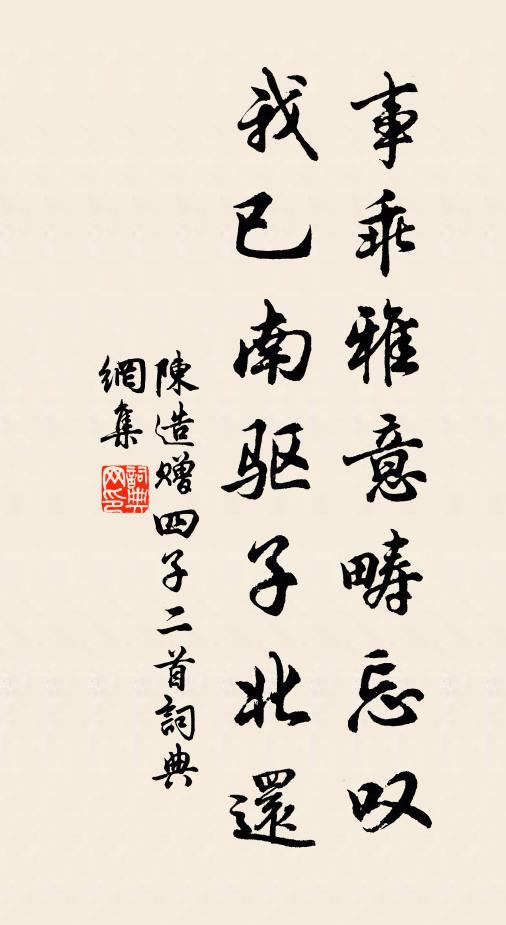 事乖雅意畴忘叹
我已南驱子北還
陳造贈四子二首詞典
網集
詞典网印